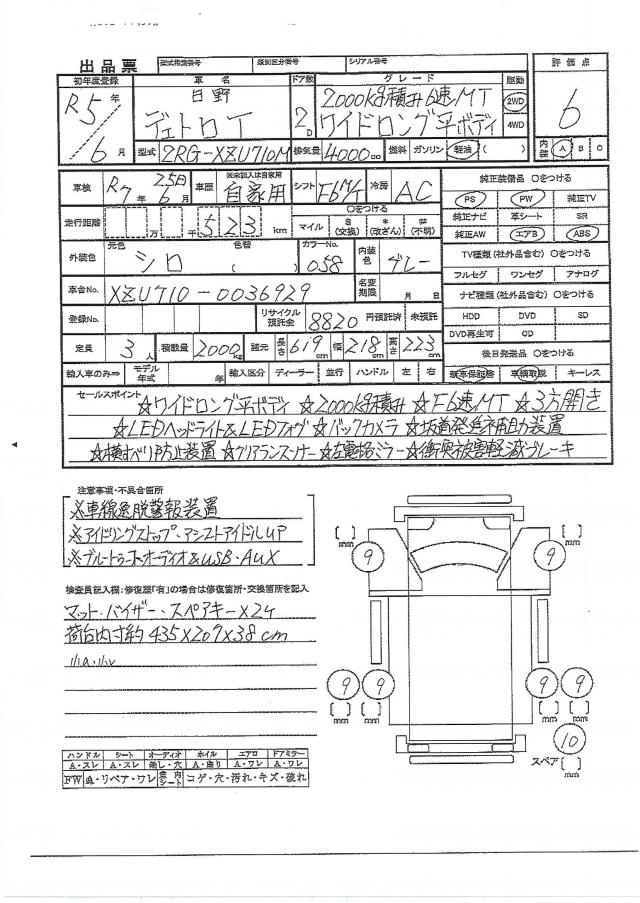 出品票 型式指定番号 類別区分番号 シリアル番号
初年度登録 車名 ドア数 グレード 駆動 評価点
R5年 日野 2000kg積 F6速MT 2WD 6
6月 デュトロ 2D ワイドロング平ボディ 4WD
型式 2RG-XZU710M 排気量 4000cc 燃料 ガソリン 軽油 内装 A B C
車検 R7年 25日 6月 車歴 ※未記入は自家用 自家用 シフト F6M/T 冷房 AC 純正装備品 〇をつける
PS PW 純正TV
走行距離 万 千 523 km 〇をつける マイル $(交換) *(改ざん) #(不明) 純正ナビ 革シート SR
純正AW エアB ABS
外装色 元色 シロ 色替 ( ) カラーNo. 058 内装色 グレー TV種類(社外品含む) 〇をつける
フルセグ ワンセグ アナログ
車台No. XZU710-0036929 名変期限 月 日 ナビ種類(社外品含む) 〇をつける
登録No. リサイクル預託金 8820 円預託済 未預託 HDD DVD SD
DVD再生可 CD
定員 3人 積載量 2000kg 諸元 長さ 619cm 幅 218cm 高さ 223cm 後日発送品 〇をつける
輸入車のみ⇒ モデル年式 年 輸入区分 ディーラー 並行 ハンドル 左 右 新車保証書 車輌取説 キーレス
セールスポイント ☆ワイドロング平ボディ ☆2000kg積 ☆F6速MT ☆3方開き
☆LEDヘッドライト&LEDフォグ ☆バックカメラ ☆坂道発進補助装置
☆横すべり防止装置 ☆クリアランスソナー ☆左電格ミラー ☆衝突被害軽減ブレーキ
注意事項・不具合箇所
※車線逸脱警報装置
※アイドリングストップ・アシストアイドルUP
※ブルートゥースオーディオ&USB・AUX
検査員記入欄:修復歴「有」の場合は修復箇所・交換箇所を記入
マット・バイザー・スペアキー×2ケ
荷台内寸約435×209×38cm
小A・小V
[ ] mm 9 9 [ ] mm
9 9 9 9
[ ] mm [ ] mm [ ] mm [ ] mm
10
スペア [ ] mm
ハンドル シート オーディオ ホイル エアロ ドアミラー
A・スレ A・スレ 無し・穴 A・曲り A・ワレ A・ワレ
FW A・リペア・ワレ 室内シート コゲ・穴・汚れ・キズ・破れ